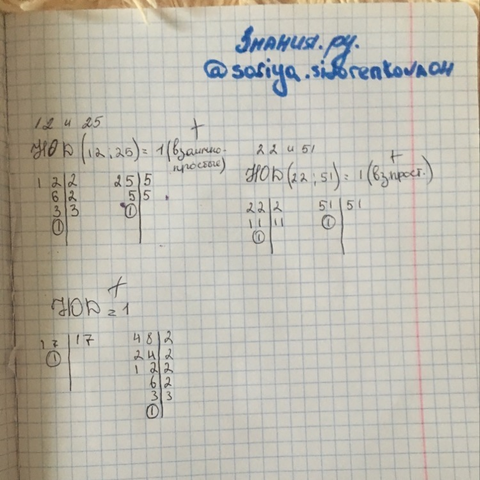 Знания.ру.
@sofiya.sidorenkovach
12 и 25
+
НОД (12,25) = 1 (взаимно-
простые)
12|2 25|5
6|2 5|5
3|3 1
1
22 и 51
+
НОД (22,51) = 1 (вз прост.)
22|2 51|51
11|11 1
1
+
НОД = 1
17|17 48|2
1 24|2
12|2
6|2
3|3
1